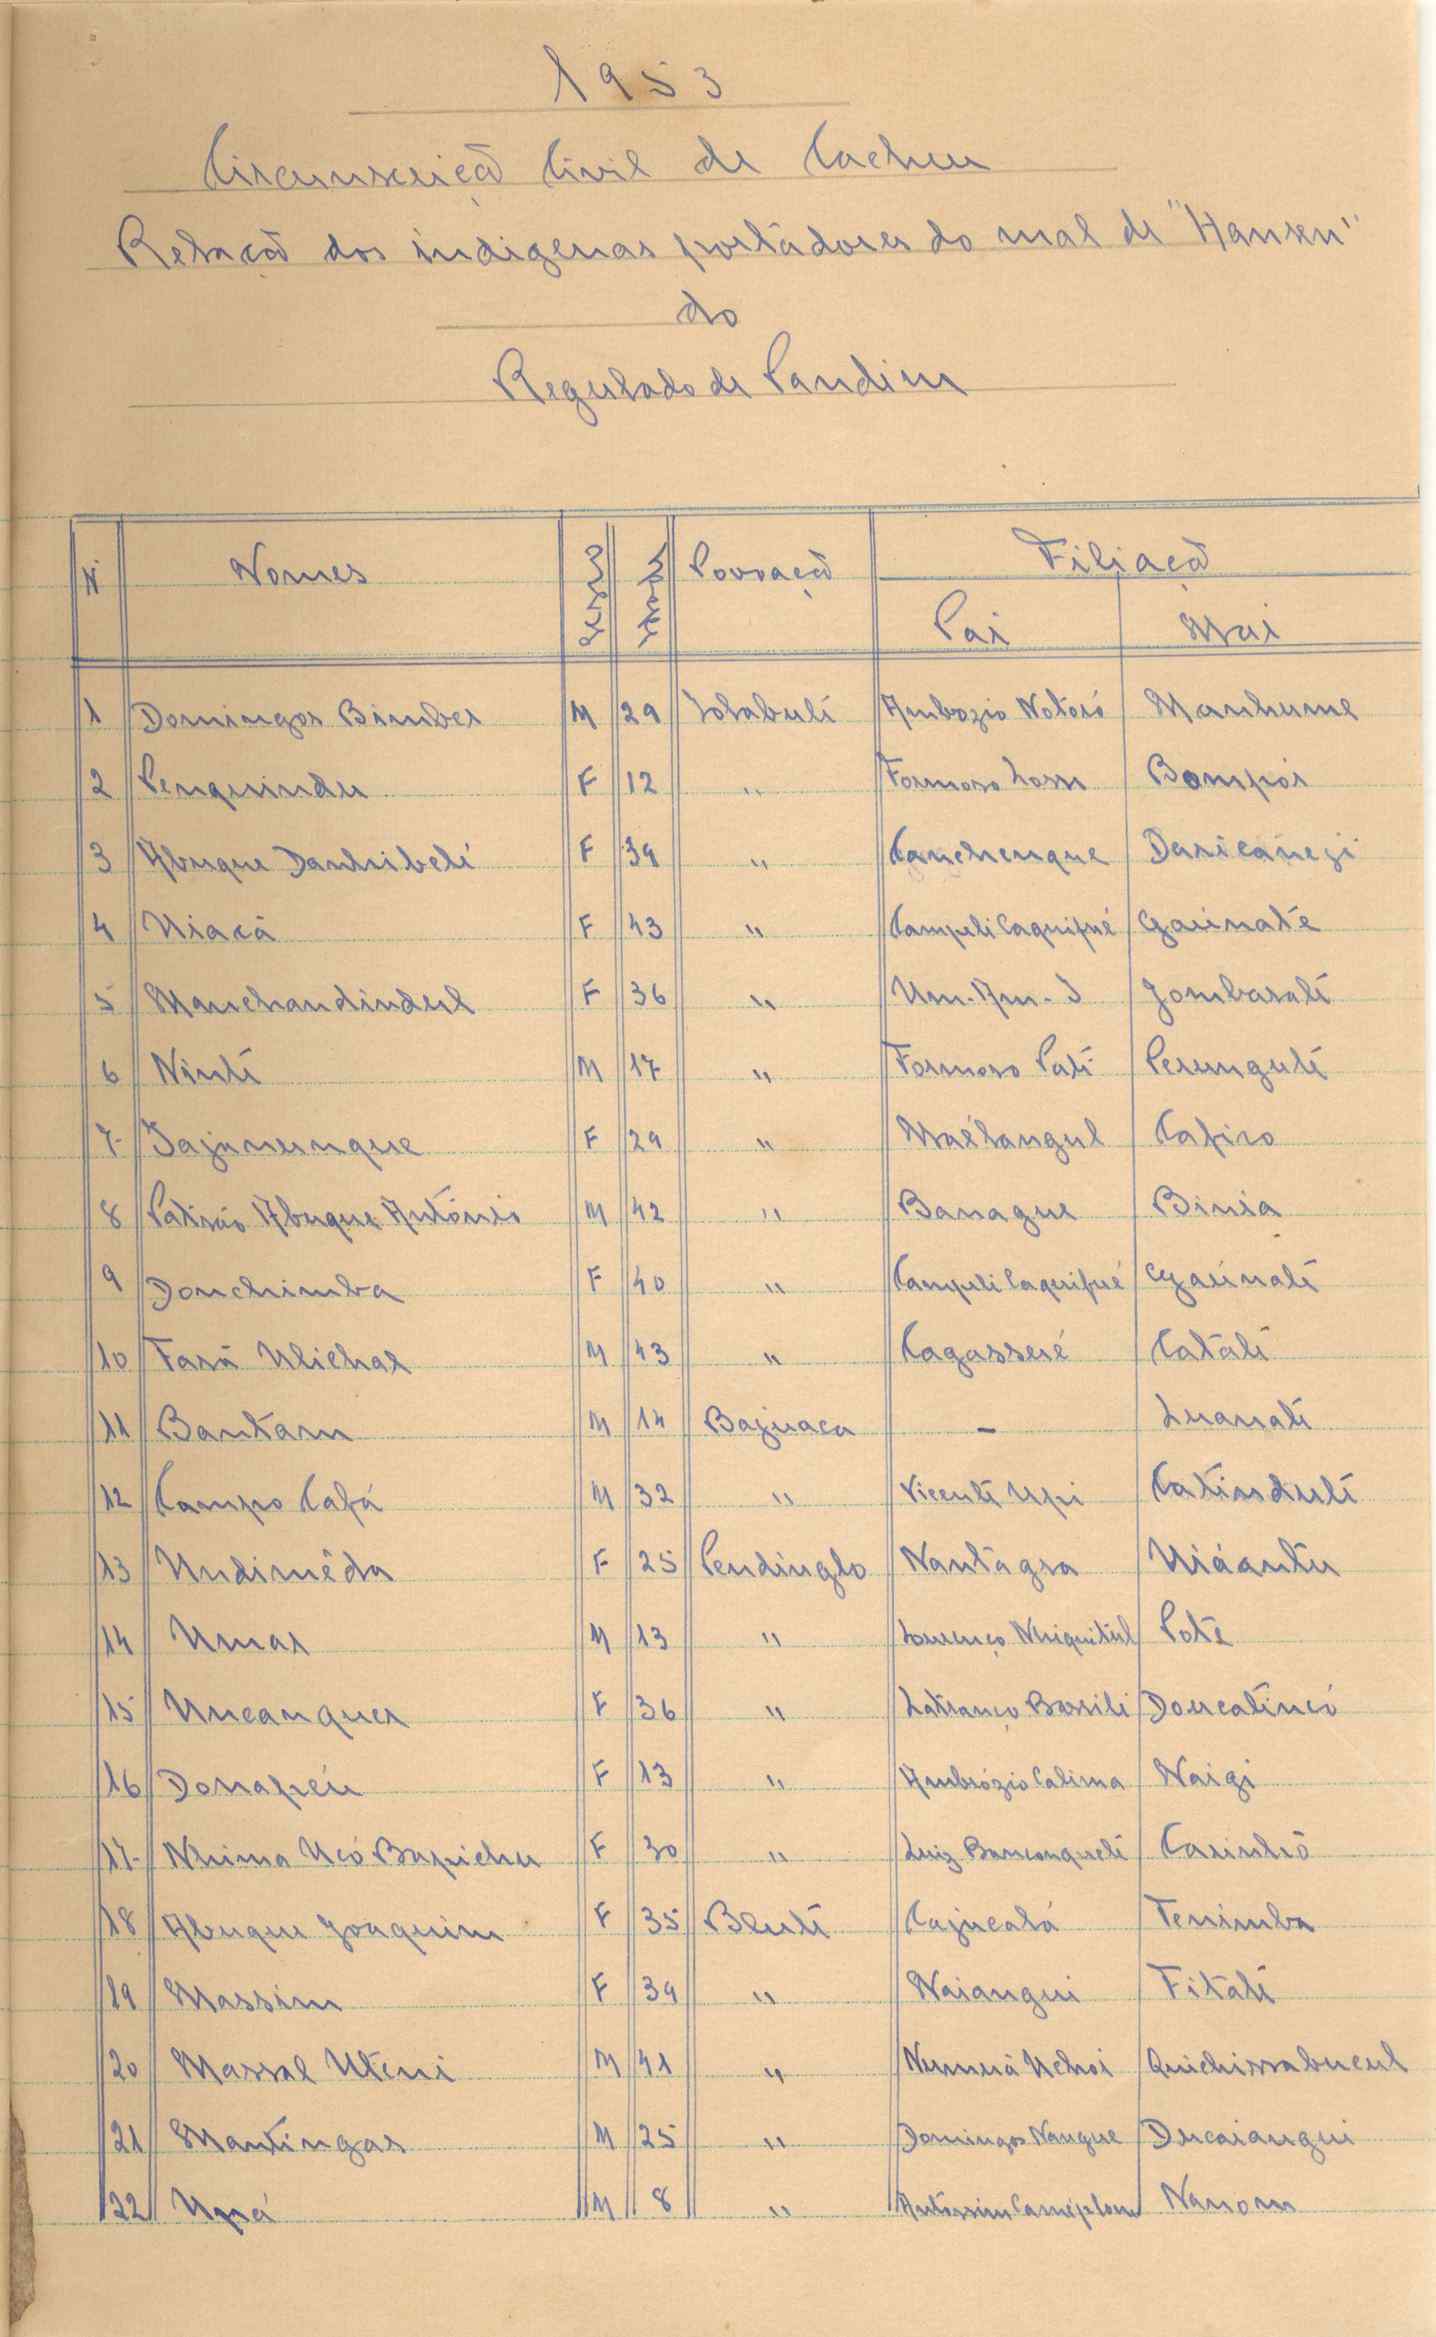 1953
Circunscrição Civil de Cacheu
Relação dos indigenas portadores do mal de "Hansen"
do
Regulado de Pandim
N Nomes Sexo Povoação Filiação
Pai Mai
1 Domingos Bimber M 29 Ambozio Notoró Manhume
2 Penquindu F 12 " Formoso Lom Bompór
3 Abuque Danhibeli F 39 " Canchenque
4 Uiacá F 43 " Campeli Caquifué Gaúnate
5 Manchandindul F 36 " Um-Am-I Jombasati
6 Ninti M 17 " Formoso Pati Perunguti
7 Jajanunque F 29 " Maélangul Cafico
8 Abuque António M 42 " Banague Binia
9 Donchimba F 40 " Campeli Caquifué Gaúnati
10 Fará Ulichal M 43 " Cagasseré Catati
11 Bantam M 14 Bajuaca - Luanati
12 Campo Cafá M 32 " Vicenti Upi
13 Undimêda F 25 Pendinglo Nantagra Uiáantu
14 Umal M 13 " Lourenço Nhiquitul Potê
15 Uncanquer F 36 " Bassili Doucatincó
16 Donapéu F 13 " Ambrózio Calima Naigi
17 Nhima Ucó Bapichu F 30 " Luiz Banconqueti Carinhó
18 Abuque Joaquim F 35 Bluti Cajucatá Tenimba
19 Massim F 39 " Naiangui Fitati
20 Massal Uteni M 41 " Uchoi Quichissabucul
21 Mantingar M 25 " Domingos Nangue Ducaiangui
22 Upá M 8 " Nanom